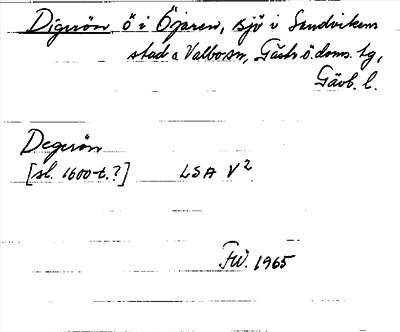 Digerön ö i Öjaren, sjö i Sandvikens
stad o Valbo sn, Gästr. ö. doms. tg,
Gävb. l.
Degerön
[sl. 1600-t.?] LSA V2
FW. 1965